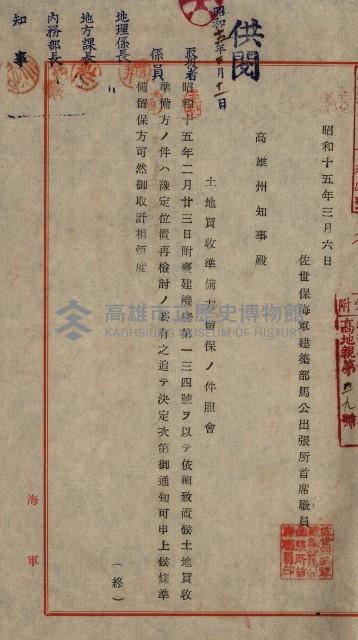 供閲
昭和十五年三月十一日
知事
内務部長
地方課長
地理係長
係員
取扱者
附高地親第
昭和十五年三月六日
佐世保海軍建築部馬公出張所首席職員
高雄州知事殿
土地買收準備方留保ノ件照會
昭和十五年二月廿三日附臺建機密第一三四號ヲ以テ依頼致置候土地買收
準備方ノ件ハ豫定位置再檢討ノ要有之追テ決定次第御通知可申上候條準
備留保方可然御取計相煩度
(終)
海軍
高雄市立歷史博物館
KAOHSIUNG MUSEUM OF HISTORY